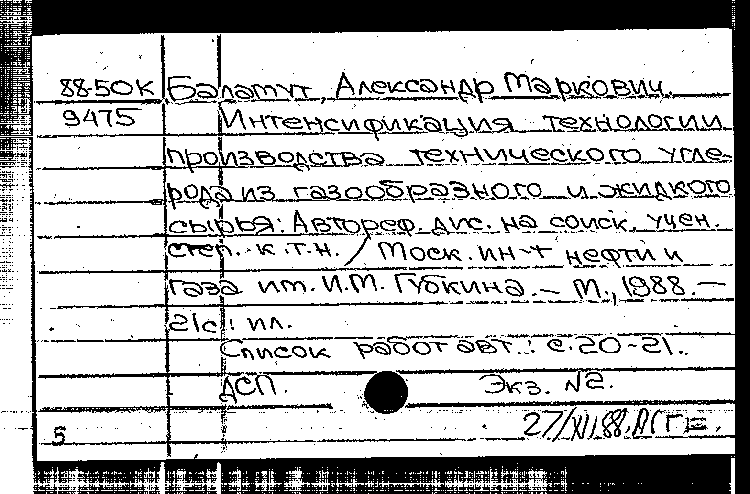 88-50К Баламут, Александр Маркович.
9475 Интенсификация технологии
производства технического угле-
рода из газообразного и жидкого
сырья: Автореф. дис. на соиск. учен.
степ. к.т.н. / Моск. ин-т нефти и
газа им. И.М. Губкина. – М., 1988. –
21с.: ил.
Список работ авт.: с. 20-21.
ДСП. Экз. №2.
5 27/XI,88.